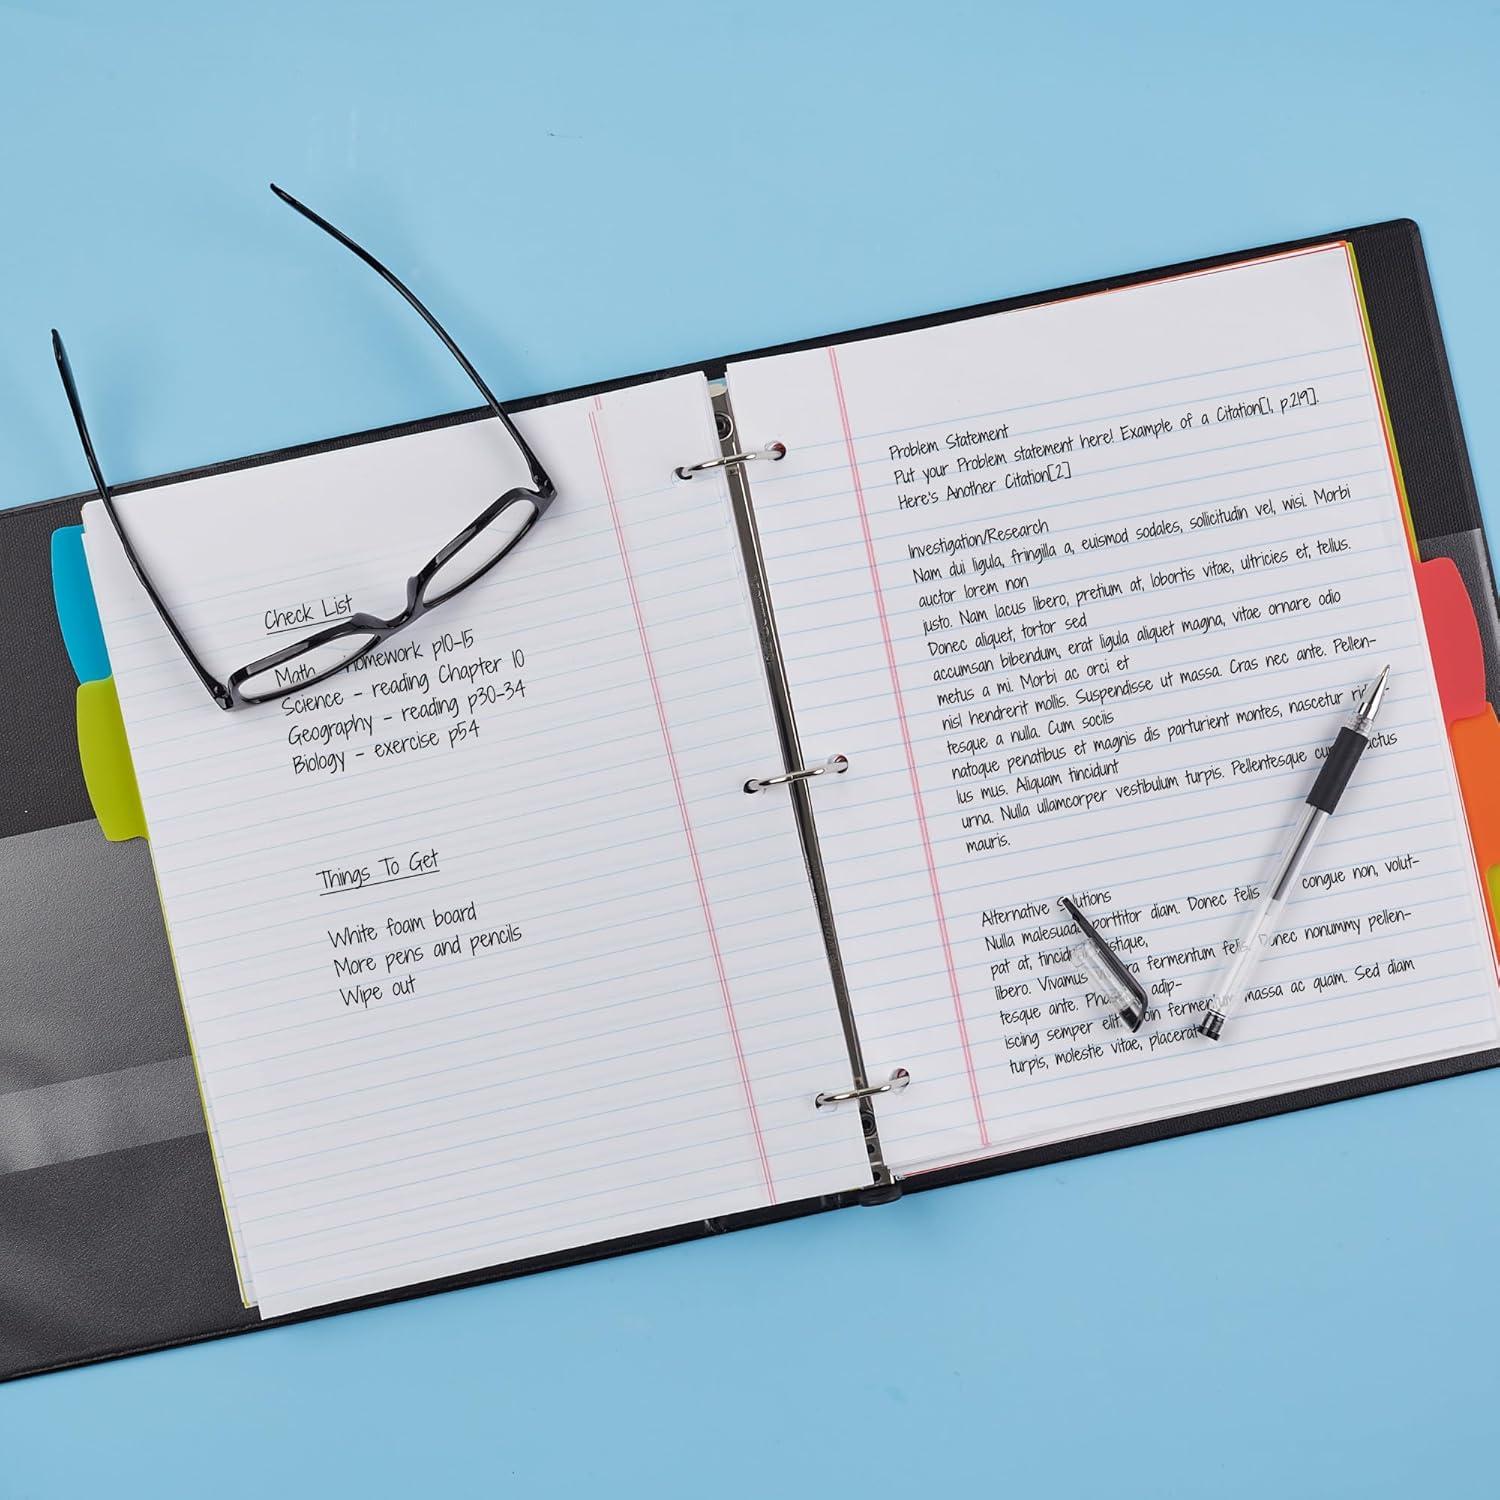 Check List
Math homework p10-15
Science - reading Chapter 10
Geography - reading p30-34
Biology - exercise p54
Things To Get
White foam board
More pens and pencils
Wipe out
Problem Statement
Put your Problem statement here! Example of a Citation[1, p.219].
Here's Another Citation[2]
Investigation/Research
Nam dui ligula, fringilla a, euismod sodales, sollicitudin vel, wisi. Morbi
auctor lorem non
justo. Nam lacus libero, pretium at, lobortis vitae, ultricies et, tellus.
Donec aliquet, tortor sed
accumsan bibendum, erat ligula aliquet magna, vitae ornare odio
metus a mi. Morbi ac orci et
nisl hendrerit mollis. Suspendisse ut massa. Cras nec ante. Pellen-
tesque a nulla. Cum sociis
natoque penatibus et magnis dis parturient montes, nascetur
lus mus. Aliquam tincidunt
urna. Nulla ullamcorper vestibulum turpis. Pellentesque
mauris.
Alternative Solutions
Nulla malesuada porttitor diam. Donec felis congue non, volut-
pat at, tincidunt tristique,
libero. Vivamus fermentum felis. Donec nonummy pellen-
tesque ante. adip-
iscing semper elit. fermentum massa ac quam. Sed diam
turpis, molestie vitae, placerat